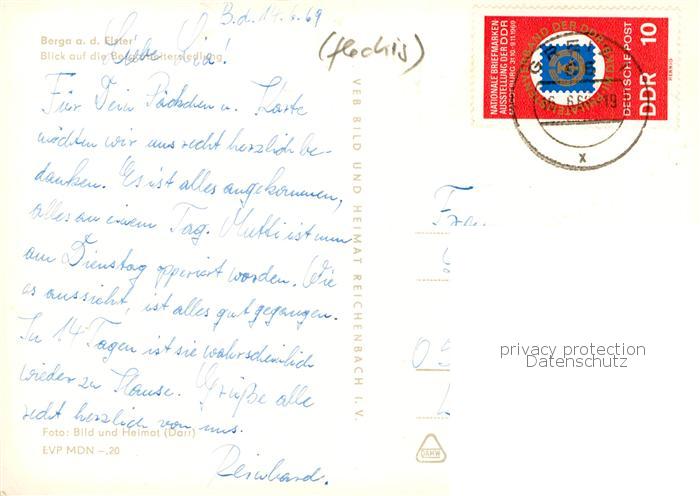 B.d. 14.6.69
Berga a. d. Elster
Liebe Lia!
(fleckig)
Blick auf die Bergarbeitersiedlung
Für Dein Päckchen u. Karte
möchten wir uns recht herzlich be-
danken. Es ist alles angekommen,
alles an einem Tag. Mutti ist nun
am Dienstag opperiert worden. Wie
es aussieht, ist alles gut gegangen.
In 14 Tagen ist sie wahrscheinlich
wieder zu Hause. Grüße alle
recht herzlich von uns.
Reinhard.
Foto: Bild und Heimat (Darr)
EVP MDN –,20
VEB BILD UND HEIMAT REICHENBACH I. V.
DAMW
NATIONALE BRIEFMARKEN
AUSSTELLUNG DER DDR
MAGDEBURG 31.10.-9.11.1969
DEUTSCHE POST
DDR 10
PFENNIG
x
privacy protection
Datenschutz